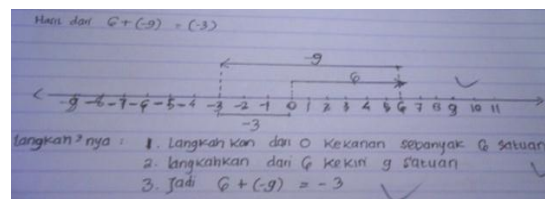 Hasil dari 6 + (-9) = (-3)
-9
6
-9 -8 -7 -6 -5 -4 -3 -2 -1 0 1 2 3 4 5 6 7 8 9 10 11
-3
langkah²nya : 1. Langkah kan dari 0 kekanan sebanyak 6 satuan
2. langkahkan dari 6 kekiri 9 satuan
3. Jadi 6 + (-9) = -3